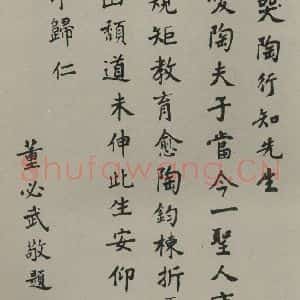 哭陶行知先生
愛陶夫子當今一聖人
規矩教育愈陶鈞棟折
山頹道未伸此生安仰
歸仁
董必武敬題
Shufawang.CN